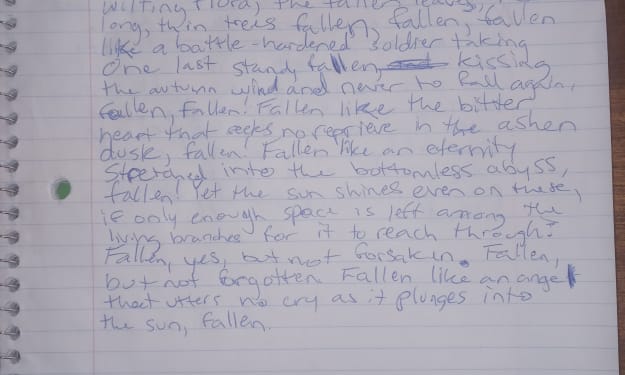 wilting flora, the fallen leaves,
ong, thin trees fallen, fallen, fallen
like a battle-hardened soldier taking
one last stand, fallen, kissing
the autumn wind and never to fall again,
fallen, fallen! Fallen like the bitter
heart that seeks no reprieve in the ashen
dusk, fallen! Fallen like an eternity
stretched into the bottomless abyss,
fallen! Yet the sun shines even on these,
if only enough space is left among the
living branches for it to reach through.
Fallen, yes, but not forsaken. Fallen,
but not forgotten. Fallen like an angel
that utters no cry as it plunges into
the sun, fallen.